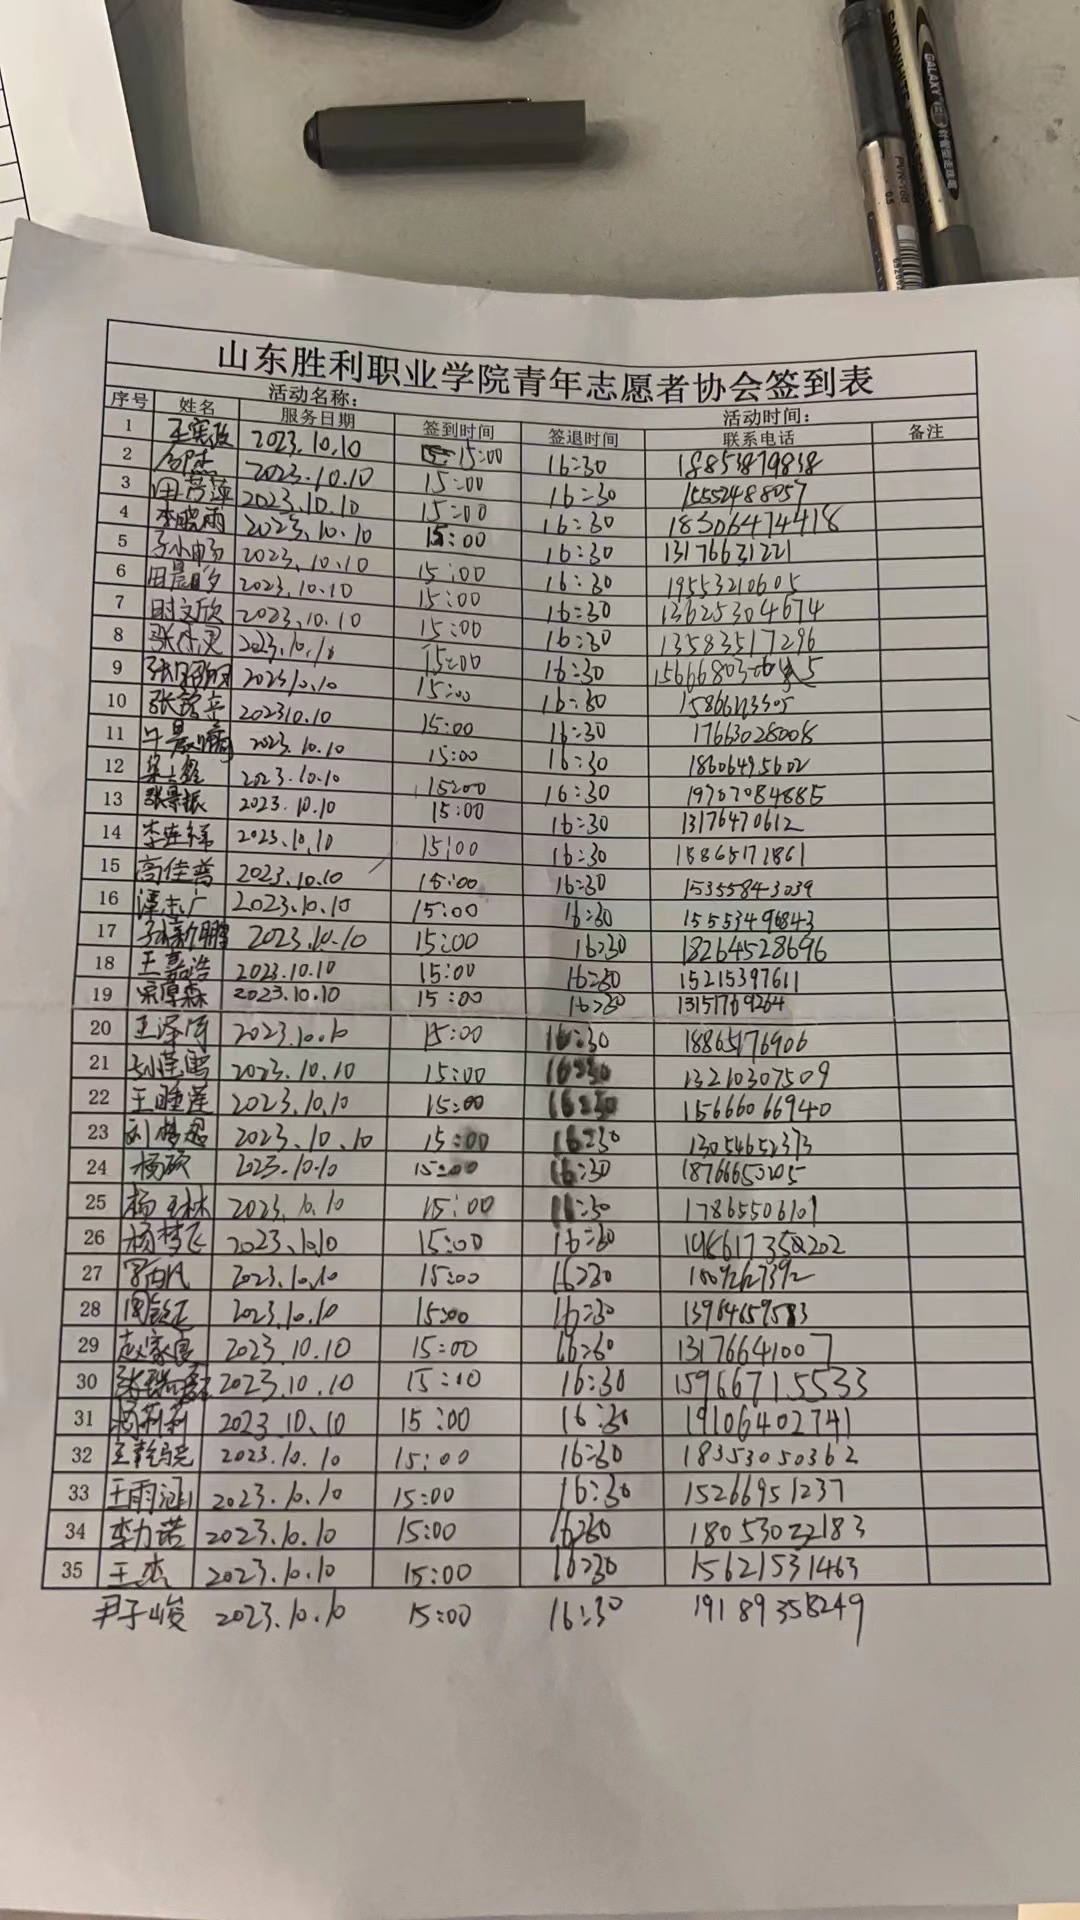 GALAXY
PVN-166
0.5
山东胜利职业学院青年志愿者协会签到表
活动名称： 活动时间：
序号 姓名 服务日期 签到时间 签退时间 联系电话 备注
1 2023.10.10 15:00 16:30 18853879838
2 邹杰 2023.10.10 15:00 16:30 15552488057
3 2023.10.10 15:00 16:30 18306474418
4 李晓雨 2023.10.10 15:00 16:30 13176631221
5 2023.10.10 15:00 16:30 19553210605
6 2023.10.10 15:00 16:30 13625304674
7 时文欣 2023.10.10 15:00 16:30 13583517296
8 2023.10.10 15:00 16:30
9 2023.10.10 15:00 16:30
10 2023.10.10 15:00 16:30 17663028008
11 2023.10.10 15:00 16:30 18606495602
12 2023.10.10 15:00 16:30 19707084885
13 张景振 2023.10.10 15:00 16:30 13176470612
14 2023.10.10 15:00 16:30 18865171861
15 高佳普 2023.10.10 15:00 16:30 15355843039
16 潭志广 2023.10.10 15:00 16:30 15553496843
17 孙新鹏 2023.10.10 15:00 16:30 18264528696
18 王嘉浩 2023.10.10 15:00 16:30 15215397611
19 宋厚森 2023.10.10 15:00 16:30 13151769264
20 王泽涛 2023.10.10 15:00 16:30 18865176906
21 2023.10.10 15:00 16:30 13210307509
22 2023.10.10 15:00 16:30 15666066940
23 2023.10.10 15:00 16:30 13054652373
24 杨硕 2023.10.10 15:00 16:30 18766650205
25 杨玉林 2023.10.10 15:00 16:30 17865506101
26 杨梦飞 2023.10.10 15:00 16:30
27 2023.10.10 15:00 16:30
28 2023.10.10 15:00 16:30 13964659583
29 赵家良 2023.10.10 15:00 16:30 13176641007
30 2023.10.10 15:00 16:30 15966715533
31 2023.10.10 15:00 16:30 19106402741
32 2023.10.10 15:00 16:30 18353050362
33 王雨涵 2023.10.10 15:00 16:30 15266951237
34 李力诺 2023.10.10 15:00 16:30 18053022183
35 王杰 2023.10.10 15:00 16:30 15621531463
尹子峻 2023.10.10 15:00 16:30 19189358249